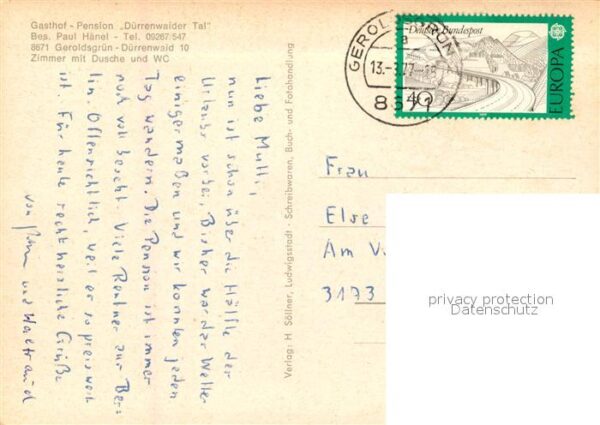 Gasthof - Pension „Dürrenwaider Tal"
Bes. Paul Hänel - Tel. 09267/547
8671 Geroldsgrün - Dürrenwaid 10
Zimmer mit Dusche und WC
Liebe Mutti,
nun ist schon über die Hälfte der
Urlaubs vorbei, Bisher war das Wetter
einigermaßen und wir konnten jeden
Tag wandern. Die Pension ist immer
noch voll besetzt. Viele Rentner aus Ber-
lin. Offensichtlich, weil es so preiswert
ist. Für heute recht herzliche Grüße
von und Waltraud
Verlag: H. Söllner, Ludwigsstadt - Schreibwaren, Buch- und Fotohandlung
GEROLDSGRÜN
a
13.-7.77-18
8671
Deutsche Bundespost
40
EUROPA
Frau
Else
Am
3173
privacy protection
Datenschutz